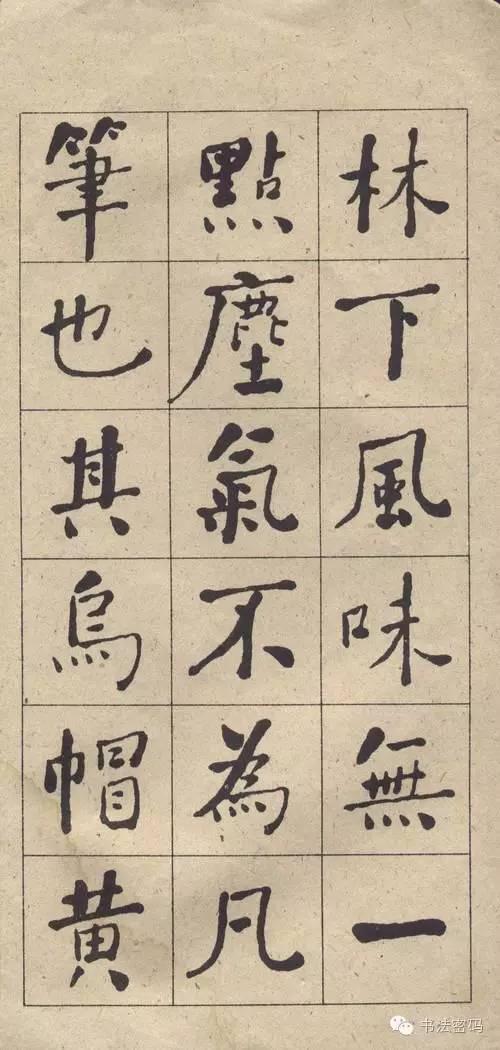 林下風味無一
點塵氣不為凡
筆也其烏帽黄
书法密码